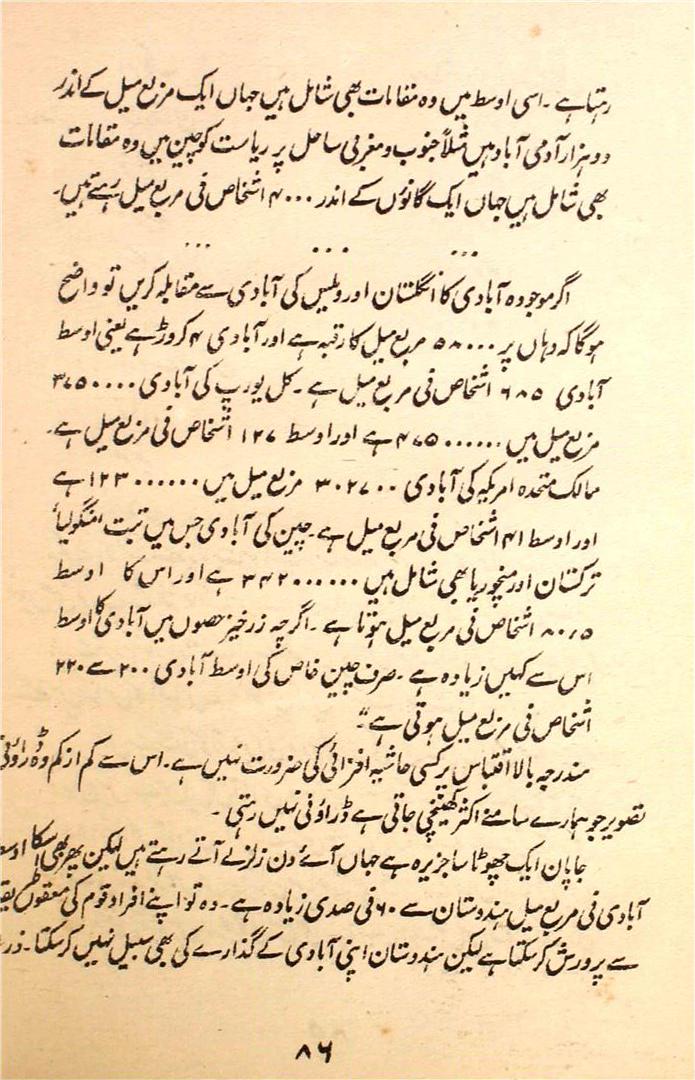 رہتا ہے ۔ اسی اوسط میں وہ مقامات بھی شامل ہیں جہاں ایک مربع میل کے اندر
دو ہزار آدمی آباد ہیں مثلاً جنوب و مغربی ساحل پر ریاست کوچین میں وہ مقامات
بھی شامل ہیں جہاں ایک گانوں کے اندر ۴۰۰۰ اشخاص فی مربع میل رہتے ہیں۔
... ... ...
اگر موجودہ آبادی کا انگلستان اور ویلس کی آبادی سے مقابلہ کریں تو واضح
ہوگا کہ وہاں پر ۵۸۰۰۰ مربع میل کا رقبہ ہے اور آبادی ۴ کروڑ ہے یعنی اوسط
آبادی ۶۸۵ اشخاص فی مربع میل ہے ۔ کل یورپ کی آبادی ۳۷۵۰۰۰۰
مربع میل میں ۴۷۵۰۰۰۰۰۰ ہے اور اوسط ۱۲۷ اشخاص فی مربع میل ہے۔
ممالک متحدہ امریکہ کی آبادی ۳۰۲۷۰۰۰ مربع میل میں ۱۲۳۰۰۰۰۰۰ ہے
اور اوسط ۴۱ اشخاص فی مربع میل ہے۔ چین کی آبادی جس میں تبت منگولیا
ترکستان اور منچوریا بھی شامل ہیں ۳۴۲۰۰۰۰۰۰ ہے اور اس کا اوسط
۸۰٫۵ اشخاص فی مربع میل ہوتا ہے ۔ اگرچہ زرخیز حصوں میں آبادی کا اوسط
اس سے کہیں زیادہ ہے ۔ صرف چین خاص کی اوسط آبادی ۲۰۰ سے ۲۲۰
اشخاص فی مربع میل ہوتی ہے"۔
مندرجہ بالا اقتباس پر کسی حاشیہ افزائی کی ضرورت نہیں ہے۔ اس سے کم از کم وہ ڈراؤنی
تصویر جو ہمارے سامنے اکثر کھینچی جاتی ہے ڈراؤنی نہیں رہتی ۔
جاپان ایک چھوٹا سا جزیرہ ہے جہاں آئے دن زلزلے آتے رہتے ہیں لیکن پھر بھی اسکا اوسط
آبادی فی مربع میل ہندوستان سے ۶۰ فی صدی زیادہ ہے ۔ وہ تو اپنے افراد قوم کی معقول
سے پرورش کر سکتا ہے لیکن ہندوستان اپنی آبادی کے گذارے کی بھی سبیل نہیں کر سکتا۔
۸۶